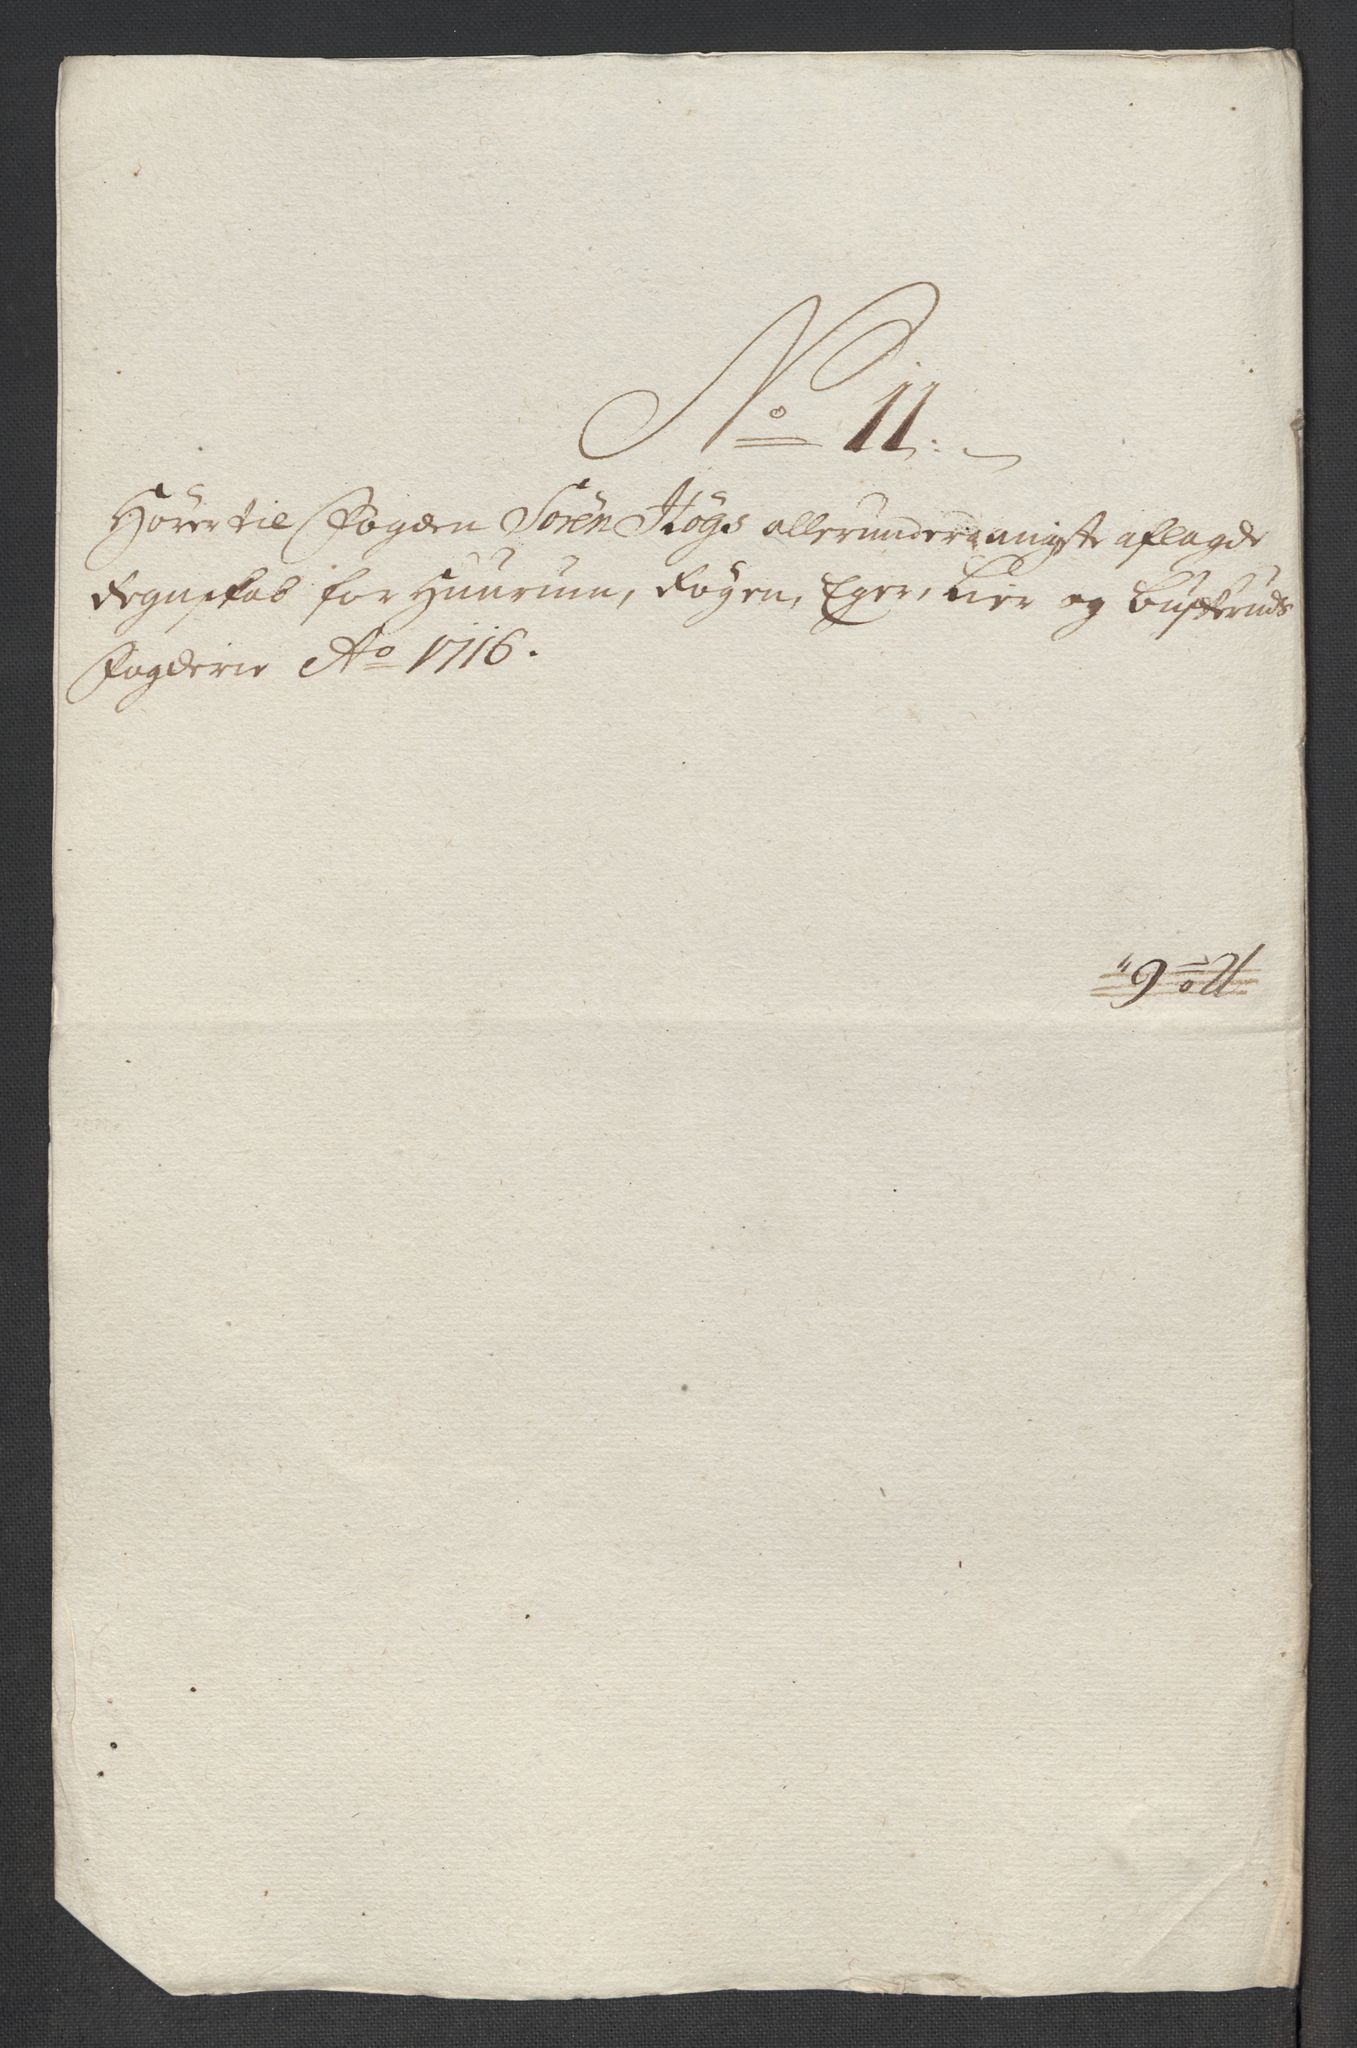 No 11.
Hörer til Fogden Sören Högs allerunderdanigste aflagde
Regnskab for Huurum, Røgen, Eger, Lier og Buskeruds
Fogderie Ao 1716.